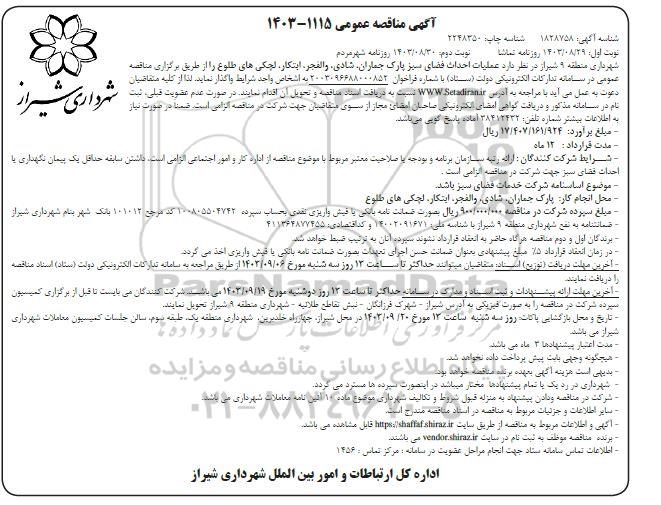 آگهی مناقصه عمومی ۱۱۱۵-۱۴۰۳
شناسه آگهی: ۱۸۲۸۷۵۸ شناسه چاپ: ۲۲۴۸۳۵۰
نوبت اول: ۱۴۰۳/۰۸/۲۹ روزنامه تماشا نوبت دوم: ۱۴۰۳/۰۸/۳۰ روزنامه شهرمردم
شهرداری منطقه ۹ شیراز در نظر دارد عملیات احداث فضای سبز پارک جماران، شادی، والفجر، ابتکار، لچکی های طلوع را از طریق برگزاری مناقصه
عمومی در سامانه تدارکات الکترونیکی دولت (ستاد) با شماره فراخوان ۲۰۰۳۰۹۶۶۸۸۰۰۰۸۵۲ به اشخاص واجد شرایط واگذار نماید. لذا از کلیه متقاضیان
دعوت به عمل می آید با مراجعه به آدرس WWW.Setadiran.ir نسبت به دریافت اسناد مناقصه و تحویل آن اقدام نمایند. در صورت عدم عضویت قبلی، ثبت
نام در سامانه مذکور و دریافت گواهی امضای الکترونیکی صاحبان امضای مجاز از سوی متقاضیان جهت شرکت در مناقصه الزامی است. ضمنا در صورت نیاز
به اطلاعات بیشتر شماره تلفن: ۳۸۴۱۲۴۳۲ آماده پاسخ گویی می‌باشد.
- مبلغ برآورد: ۱۷/۴۰۷/۱۶۱/۹۲۴ ریال
- مدت قرارداد : ۱۲ ماه
- شرایط شرکت کنندگان : ارائه رتبه سازمان برنامه و بودجه یا صلاحیت معتبر مربوط با موضوع مناقصه از اداره کار و امور اجتماعی الزامی است. داشتن سابقه حداقل یک پیمان نگهداری یا
احداث فضای سبز جهت شرکت در مناقصه الزامی است .
- موضوع اساسنامه شرکت خدمات فضای سبز باشد.
- محل انجام کار: پارک جماران، شادی، والفجر، ابتکار، لچکی های طلوع
- مبلغ سپرده شرکت در مناقصه ۹۰۰/۰۰۰/۰۰۰ ریال بصورت ضمانت نامه بانکی یا فیش واریزی نقدی بحساب سپرده ۱۰۰۸۰۵۵۰۴۷۴۲ کد مرجع ۱۰۱۰۱۲ بانک شهر بنام شهرداری شیراز
- ضمانتنامه به نفع شهرداری منطقه ۹ شیراز با شناسه ملی: ۱۴۰۰۲۰۹۱۶۷۱ و کداقتصادی: ۴۱۱۳۶۴۸۷۷۴۵۵
- برندگان اول و دوم مناقصه هرگاه حاضر به انعقاد قرارداد نشوند سپرده آنان به ترتیب ضبط خواهد شد.
- در زمان انعقاد قرارداد ۵٪ مبلغ پیشنهادی بعنوان ضمانت حسن اجرای تعهدات بصورت ضمانت نامه بانکی یا فیش واریزی اخذ می گردد.
- آخرین مهلت دریافت (توزیع) اسناد: متقاضیان میتوانند حداکثر تا ساعت ۱۳ روز سه شنبه مورخ ۱۴۰۳/۰۹/۰۶ از طریق مراجعه به سامانه تدارکات الکترونیکی دولت (ستاد) اسناد مناقصه
را دریافت نمایند.
- آخرین مهلت ارائه پیشنهادات و ثبت اسناد و مدارک در سامانه حداکثر تا ساعت ۱۳ روز دوشنبه مورخ ۱۴۰۳/۰۹/۱۹ می باشد. شرکت کنندگان می بایست تا قبل از برگزاری کمیسیون
سپرده شرکت در مناقصه را به صورت فیزیکی به آدرس شیراز - شهرک فرزانگان - نبش تقاطع طلائیه - شهرداری منطقه ۹ شیراز تحویل نمایند.
- تاریخ و محل بازگشایی پاکات: روز سه شنبه ساعت ۱۳ مورخ ۱۴۰۳/۰۹/۲۰ در محل شیراز، چهارراه خلدبرین، شهرداری منطقه یک، طبقه سوم، سالن جلسات کمیسیون معاملات شهرداری
شیراز می باشد.
- مدت اعتبار پیشنهادها ۳ ماه می باشد.
- هیچگونه وجهی بابت پیش پرداخت داده نخواهد شد.
- بدیهی است هزینه آگهی بعهده برنده مناقصه خواهد بود.
- شهرداری در رد یک یا تمام پیشنهادها مختار میباشد در اینصورت سپرده ها مسترد می گردد.
- شرکت در مناقصه ودادن پیشنهاد به منزله قبول شروط و تکالیف شهرداری موضوع ماده ۱۰ آئین نامه معاملات شهرداری می باشد.
- سایر اطلاعات و جزئیات مربوط به مناقصه در اسناد مناقصه مندرج است.
- آگهی و اطلاعات مربوط به مناقصه از طریق سایت https://shaffaf.shiraz.ir قابل مشاهده می باشد.
- برنده مناقصه موظف به ثبت نام در سایت vendor.shiraz.ir می باشند.
- اطلاعات تماس سامانه ستاد جهت انجام مراحل عضویت در سامانه : مرکز تماس : ۱۴۵۶
اداره کل ارتباطات و امور بین الملل شهرداری شیراز
شهرداری شیراز